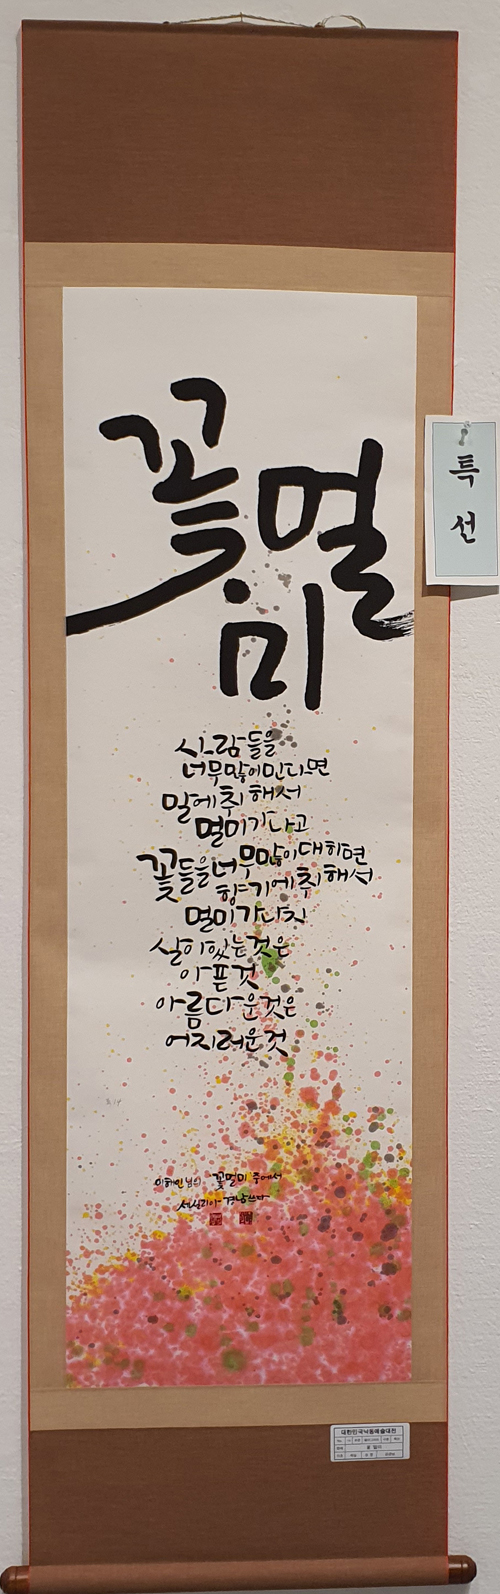 꽃멀
미
특
선
사람들을
너무많이만나면
말에취해서
멀미가나고
꽃들을너무많이대하면
향기에취해서
멀미가나지
살아있는것은
아픈것
아름다운것은
어지러운것
이해인님의 꽃멀미 中에서
대한민국낙동예술대전
꽃 멀미